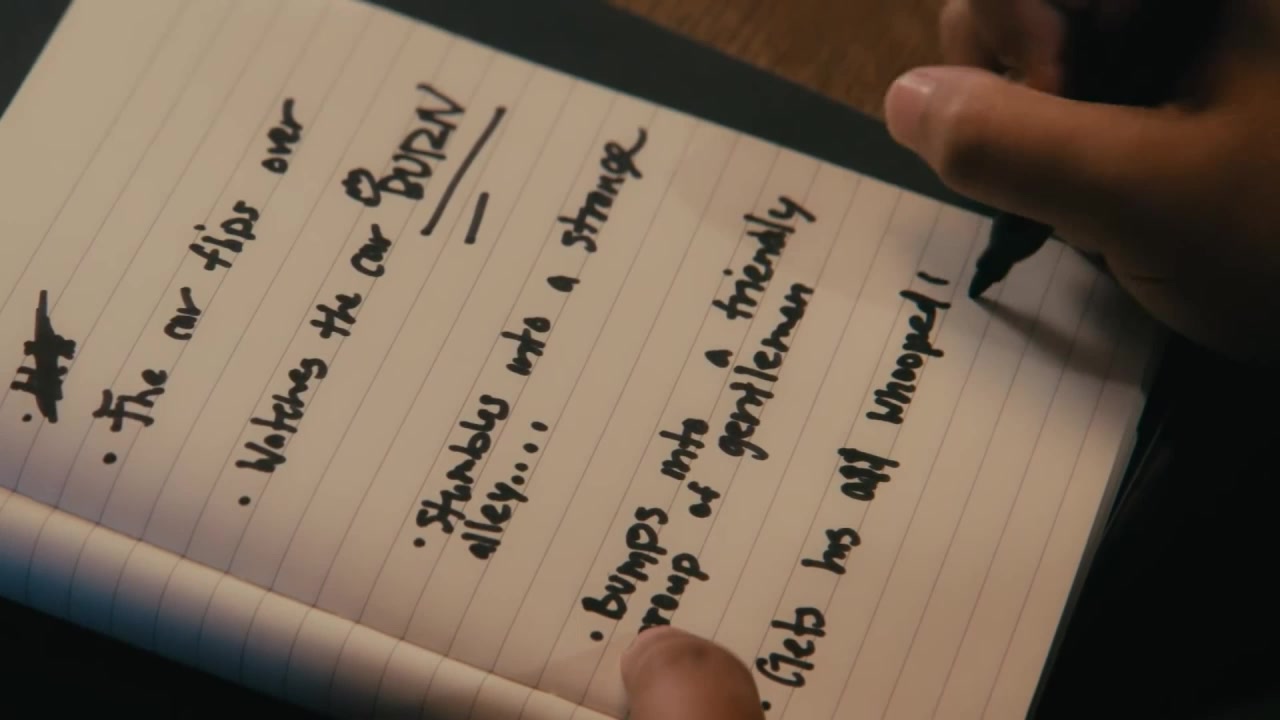 • The car flips over
• Watches the car BURN
• Stumbles into a strange
alley....
• Bumps into a friendly
group of gentleman
• Gets his a** whooped!